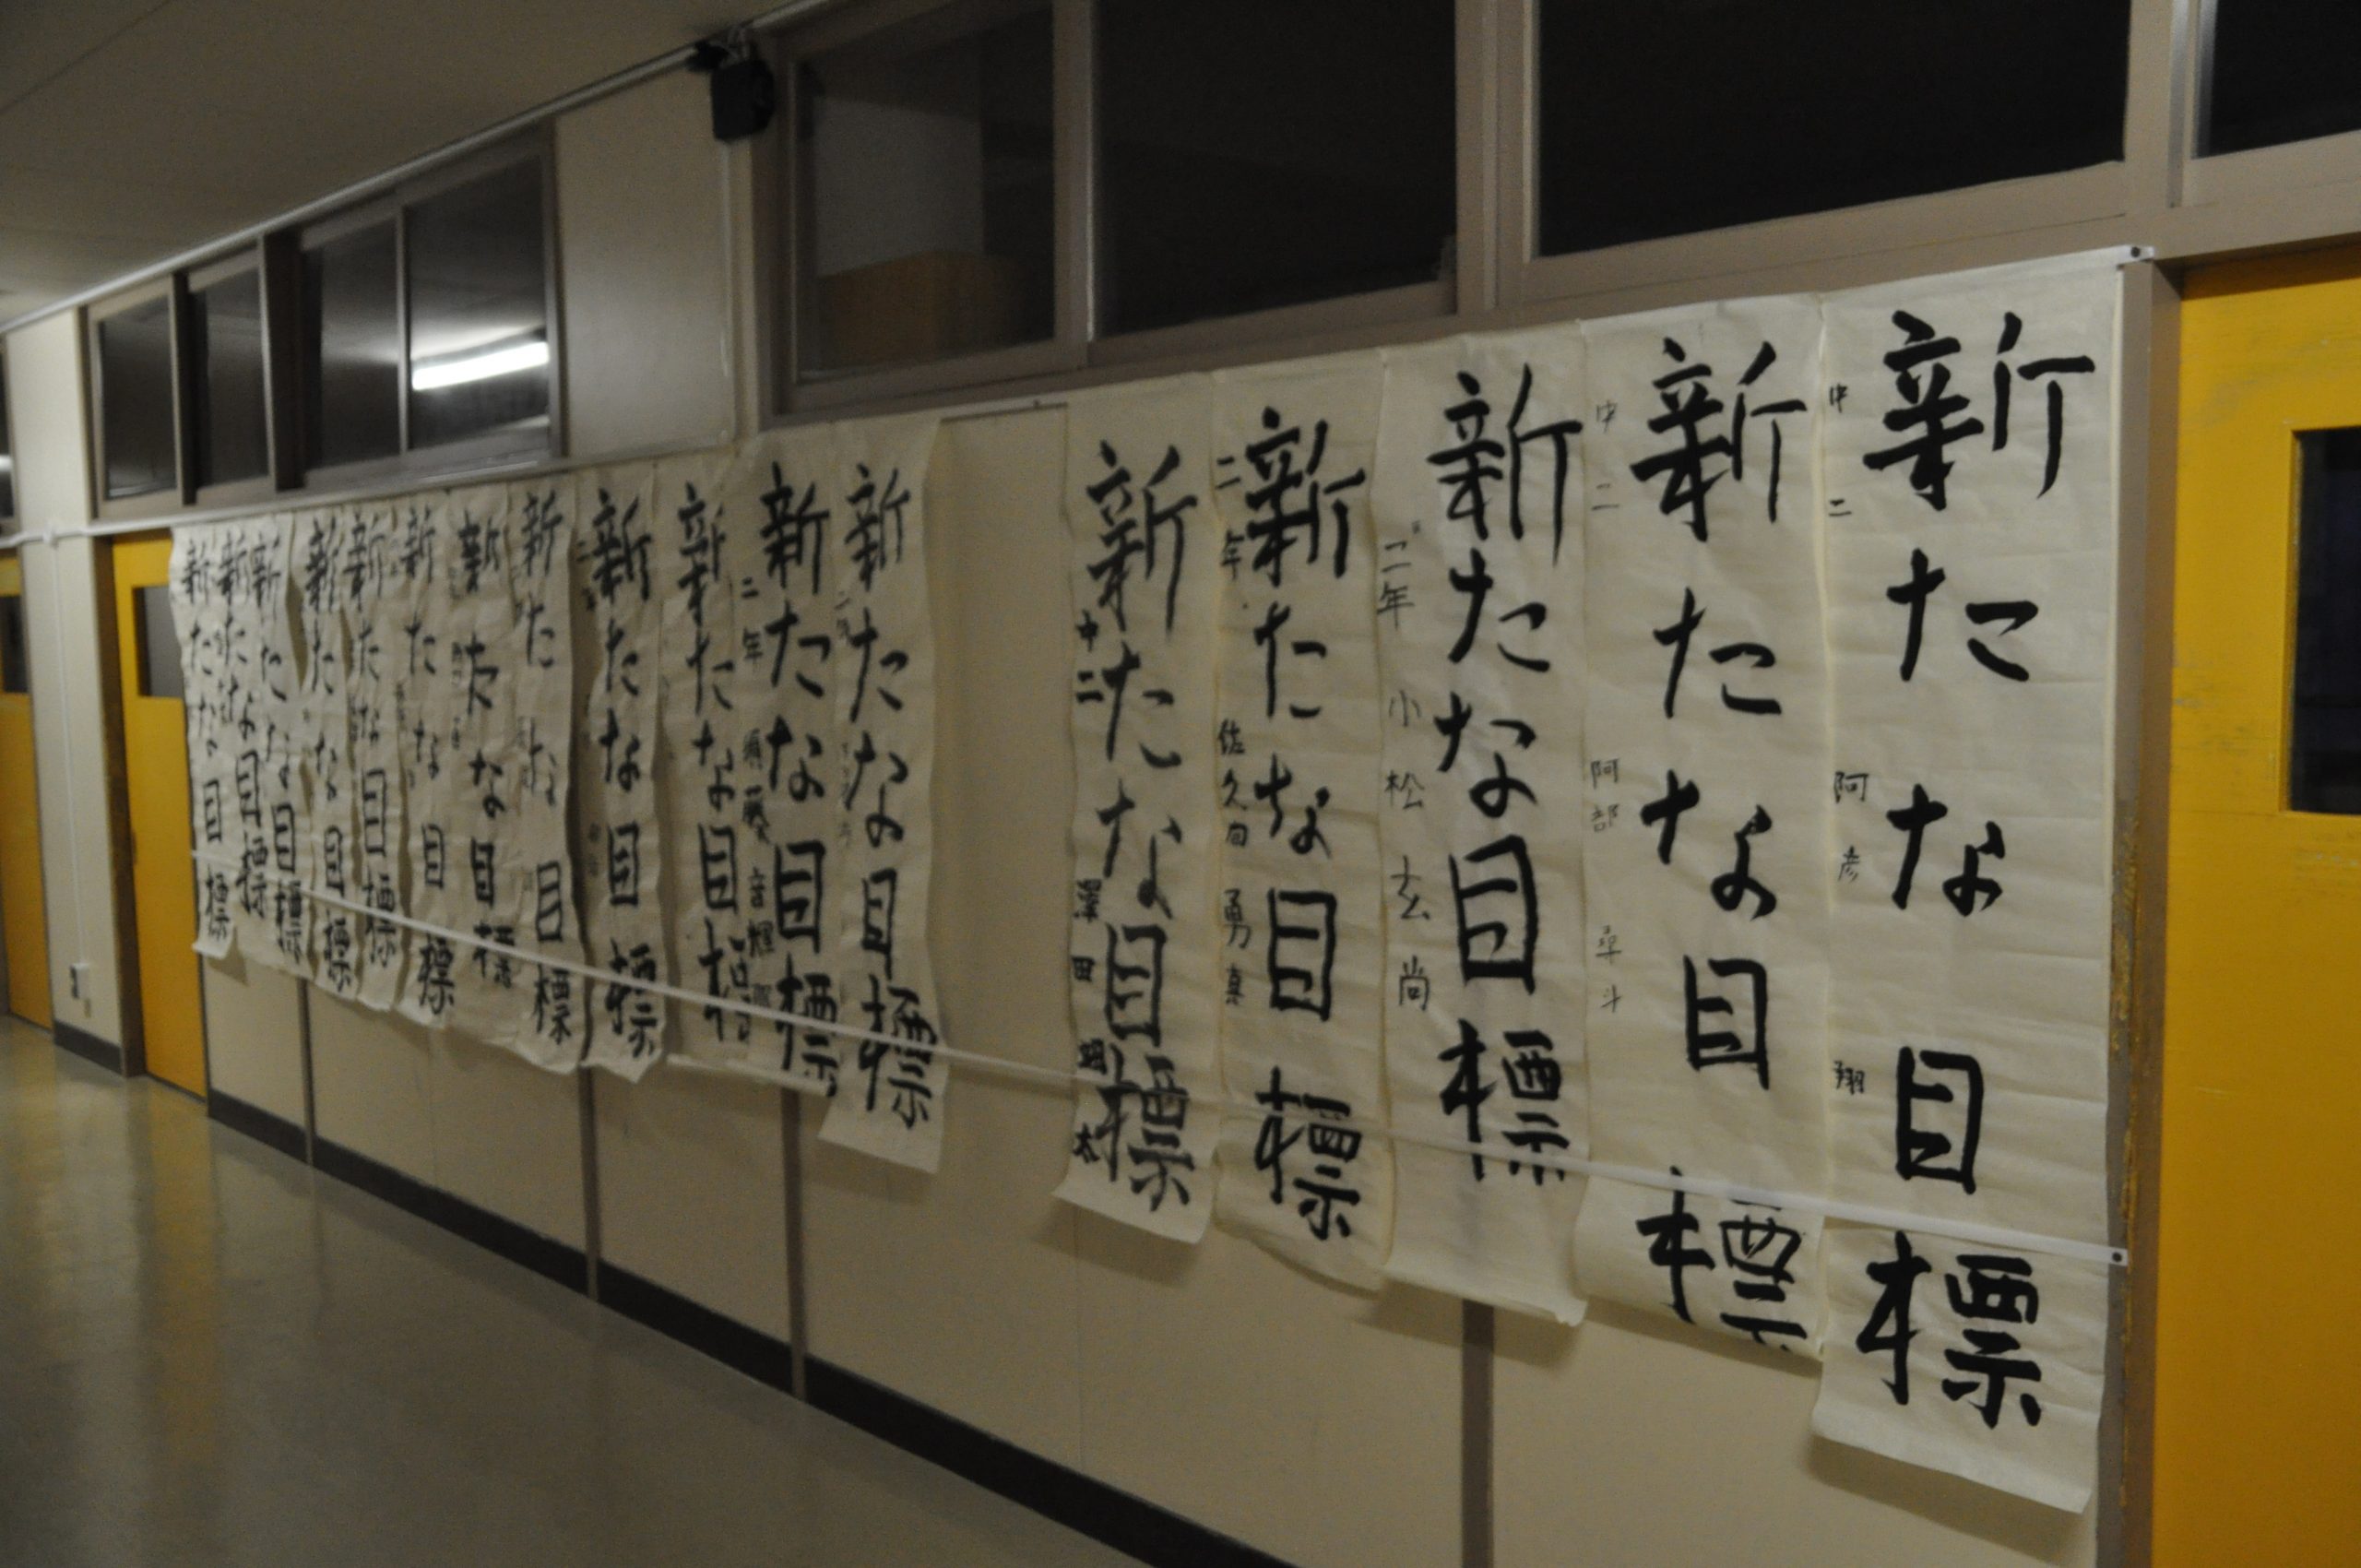 新たな目標
中二 阿彦 翔
新たな目標
中二 阿部 斗
新たな目標
二年 小松 玄尚
新たな目標
二年 佐久間 勇真
新たな目標
中二 澤田 太
新たな目標
新たな目標
二年 須藤 音
新たな目標
新たな目標
新たな目標
新たな目標
新たな目標
新たな目標
新たな目標
新たな目標
新たな目標
新たな目標